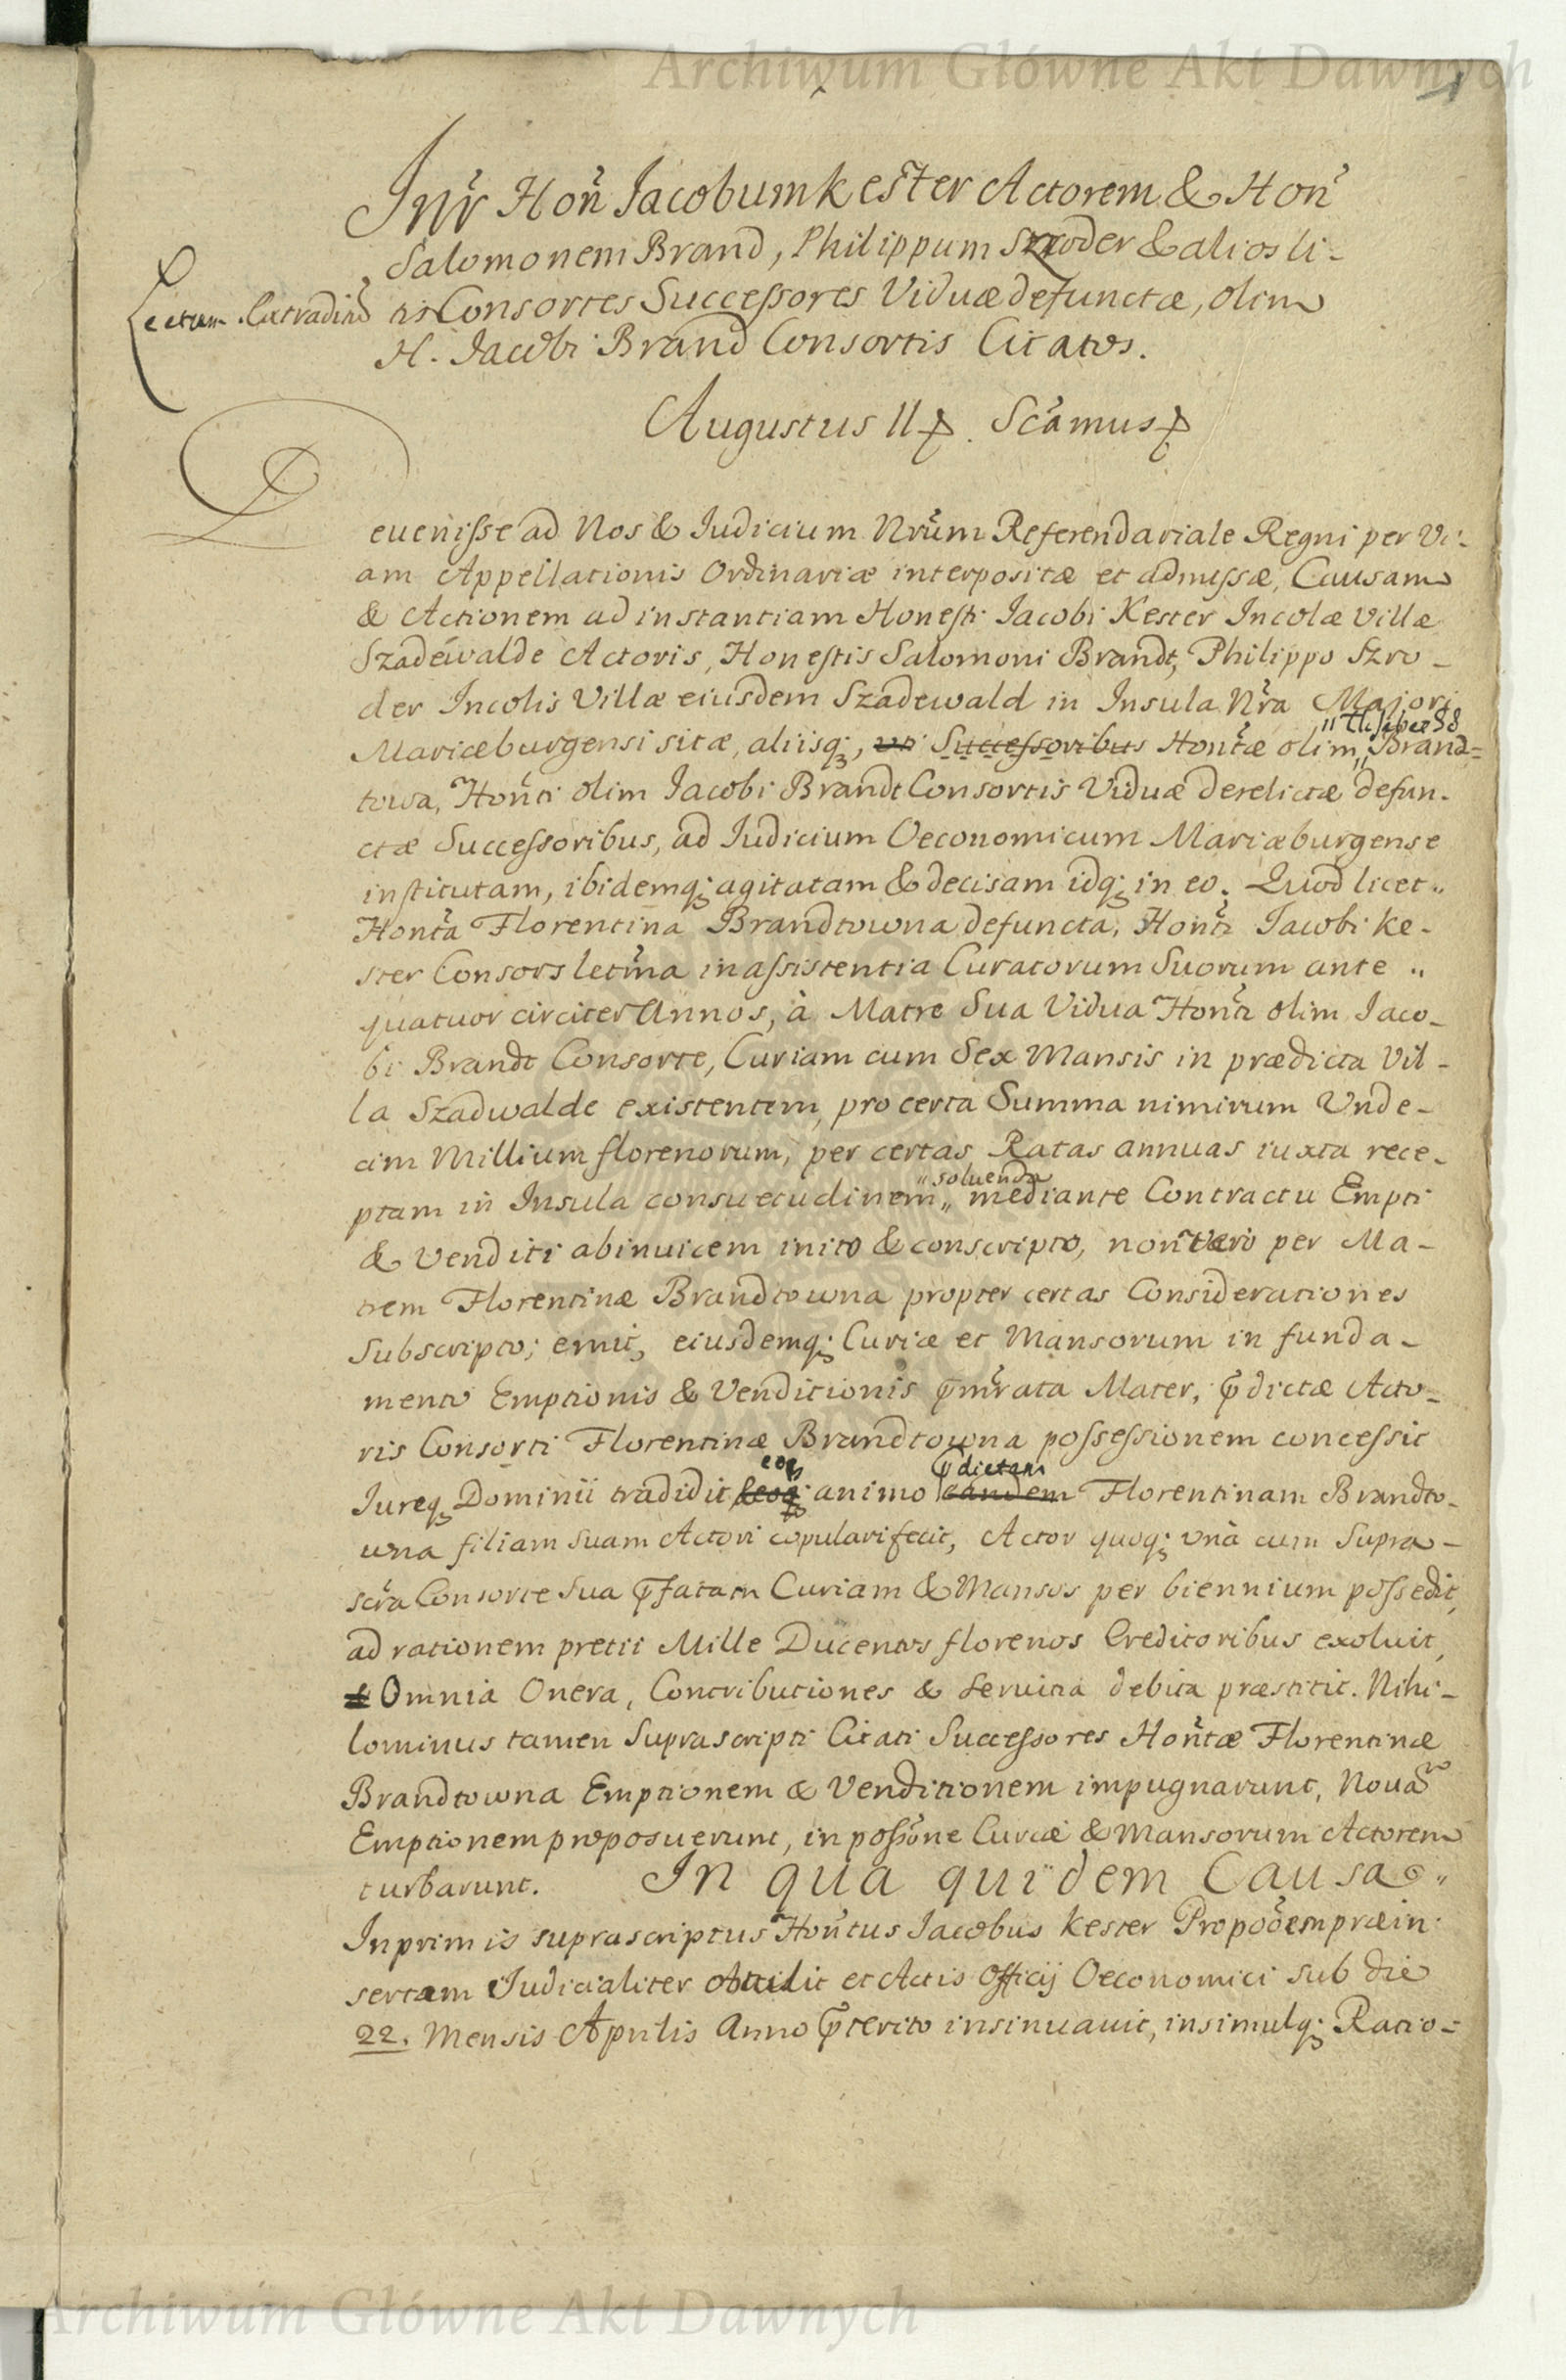 Archiwum Główne Akt Dawnych
1
Inr̃ Hoñ Jacobum Kester Actorem & Hoñ
Salomonem Brand, Philippum Szroder & alios li-
tis Consortes Successores Viduæ defunctæ, olim
Lectum. Extradend
H. Jacobi Brand Consortis Citatos.
Augustus II Scãmus
Deuenisse ad Nos & Iudicium Nrũm Referendariale Regni per Vi-
am Appellationis Ordinariæ interpositæ et admissæ, Causam
& Actionem ad instantiam Honesti Iacobi Kester Incolæ Villæ
Szadewalde Actoris, Honestis Salomoni Brandt, Philippo Szro-
der Incolis Villæ eiusdem Szadewald in Insula Nrã Majori
Mariæburgensi sitæ, aliisq;, uti Successoribus Honĩæ olim, Brand=
towa, Honti olim Iacobi Brandt Consortis Viduæ derelictæ defun-
ctæ Successoribus, ad Iudicium Oeconomicum Mariæburgense
institutam, ibidemq; agitatam & decisam idq; in eo. Quod licet
Hontã Florentina Brandtowna defuncta, Honti Iacobi Ke-
ster Consors letm̃a in assistentia Curatorum Suorum ante
quatuor circiter Annos, à Matre Sua Vidua Honti olim Iaco-
bi Brandt Consorte, Curiam cum Sex Mansis in prædicta Vil-
la Szadwalde existentem, pro certa Summa nimirum Vnde-
cim Millium florenorum, per certas Ratas annuas iuxta rece-
soluenda
ptam in Insula consuetudinem mediante Contractu Empti
& Venditi abinuicem inito & conscripto, non vero per Ma-
trem Florentinæ Brandtowna propter certas Considerationes
Subscripto; emit, eiusdemq; Curiæ et Mansorum in funda-
mento Emptionis & Venditionis p̃mr̃ata Mater, p̃dictæ Acto-
ris Consorti Florentinæ Brandtowna possessionem concessit
eoq; p̃dictam
Iureq; Dominii tradidit eoq; animo eandem Florentinam Brandto-
wna filiam suam Actori copulari fecit, Actor quoq; vnà cum Supra-
scrã Consorte Sua p̃fatam Curiam & Mansos per biennium possedit,
ad rationem pretii Mille Ducentos florenos Creditoribus exoluit,
& Omnia Onera, Contributiones & Seruitia debita præstitit. Nihi-
lominus tamen Suprascripti Citati Successores Hontæ Florentinæ
Brandtowna Emptionem & Venditionem impugnarunt, Nouã
Emptionem proposuerunt, in possõne Curiæ & Mansorum Actorem
turbarunt. In qua quidem Causa
Inprimis suprascriptus Hontus Iacobus Kester Propoõem præin-
sertam Iudicialiter obtulit et Actis Officij Oeconomici sub die
22. Mensis Aprilis Anno p̃terito insinuauit, insimulq; Ratio=
Archiwum Główne Akt Dawnych